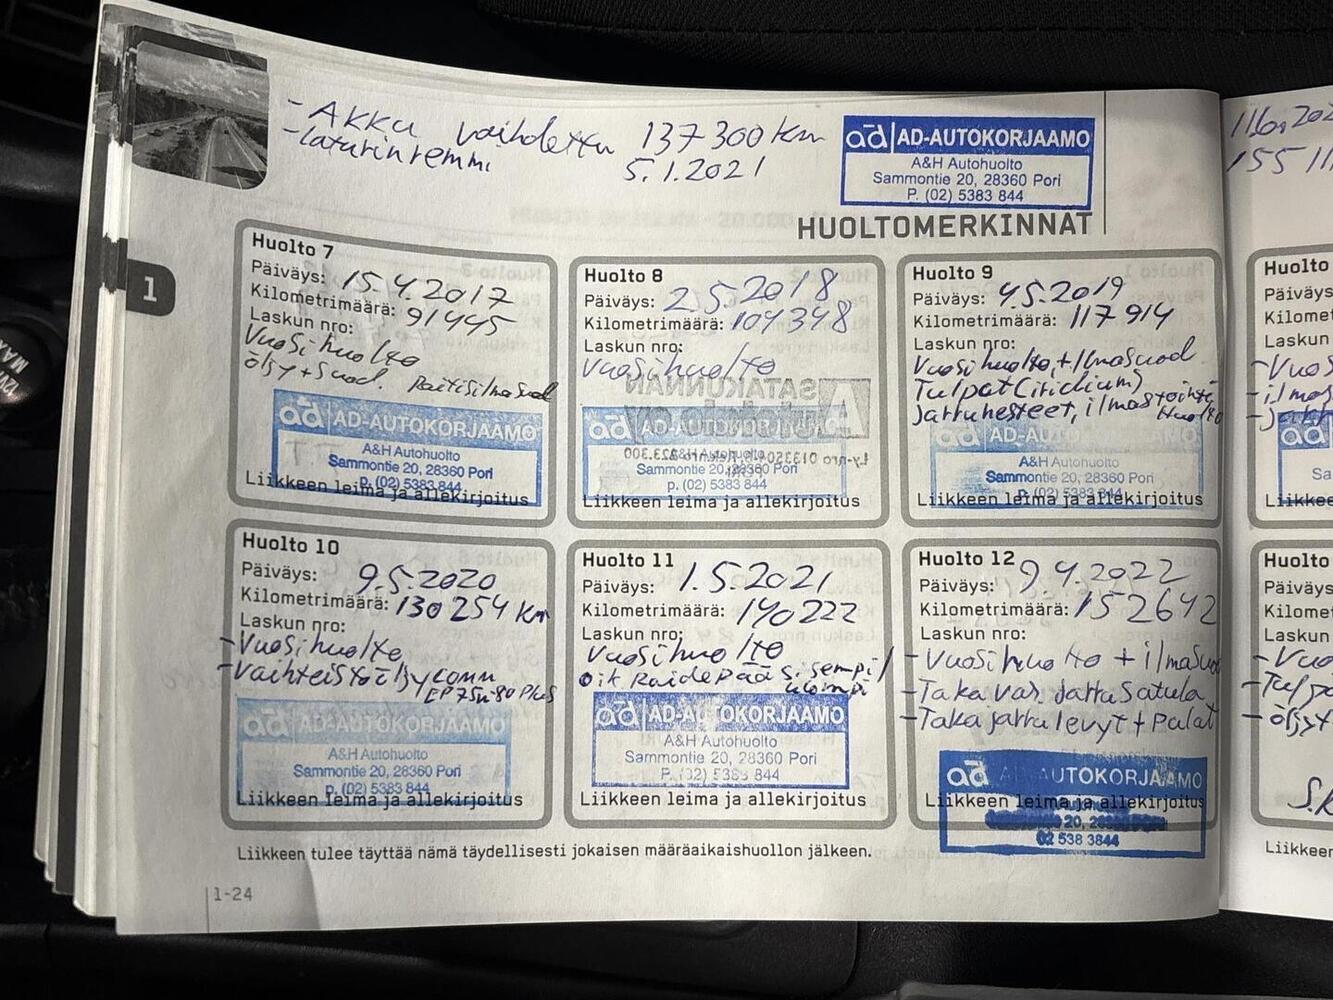 - AKKU vaihdettu 137300 km
- laturinremmi 5.1.2021
ad AD-AUTOKORJAAMO
A&H Autohuolto
Sammontie 20, 28360 Pori
P. (02) 5383 844
HUOLTOMERKINNÄT
1
Huolto 7
Päiväys: 15.4.2017
Kilometrimäärä: 91445
Laskun nro:
Vuosihuolto
öljy + suod. Raitisilmasuod
ad AD-AUTOKORJAAMO
A&H Autohuolto
Sammontie 20, 28360 Pori
p. (02) 5383 844
Liikkeen leima ja allekirjoitus
Huolto 8
Päiväys: 2.5.2018
Kilometrimäärä: 104348
Laskun nro:
Vuosihuolto
ad AD-AUTOKORJAAMO
A&H Autohuolto
Sammontie 20, 28360 Pori
p. (02) 5383 844
Liikkeen leima ja allekirjoitus
Huolto 9
Päiväys: 4.5.2019
Kilometrimäärä: 117914
Laskun nro:
Vuosihuolto, + Ilmasuod
Tulpat (iridium)
Jarrunesteet, ilmastointi
Huolto
ad AD-AUTOKORJAAMO
A&H Autohuolto
Sammontie 20, 28360 Pori
p. (02) 5383 844
Liikkeen leima ja allekirjoitus
Huolto 10
Päiväys: 9.5.2020
Kilometrimäärä: 130254 km
Laskun nro:
- Vuosihuolto
- Vaihteistoöljy comm
EP 75W-80 Plus
ad AD-AUTOKORJAAMO
A&H Autohuolto
Sammontie 20, 28360 Pori
p. (02) 5383 844
Liikkeen leima ja allekirjoitus
Huolto 11
Päiväys: 1.5.2021
Kilometrimäärä: 140222
Laskun nro:
Vuosihuolto
oik Raidepää s. sempi/
ulompi
ad AD-AUTOKORJAAMO
A&H Autohuolto
Sammontie 20, 28360 Pori
P. (02) 5383 844
Liikkeen leima ja allekirjoitus
Huolto 12
Päiväys: 9.4.2022
Kilometrimäärä: 152642
Laskun nro:
- Vuosihuolto + ilmasuod
- Taka vas. jarrusatula
- Taka jarrulevyt + palat
ad AD-AUTOKORJAAMO
Liikkeen leima ja allekirjoitus
02 538 3844
Liikkeen tulee täyttää nämä täydellisesti jokaisen määräaikaishuollon jälkeen.
1-24
Huolto
Päiväys
Kilomet
Laskun
- Vuos
- ilmas
ad
Liikkee
Huolto
Päiväy
Kilome
Laskun
- Vuo
- Tulp
Liikkeen